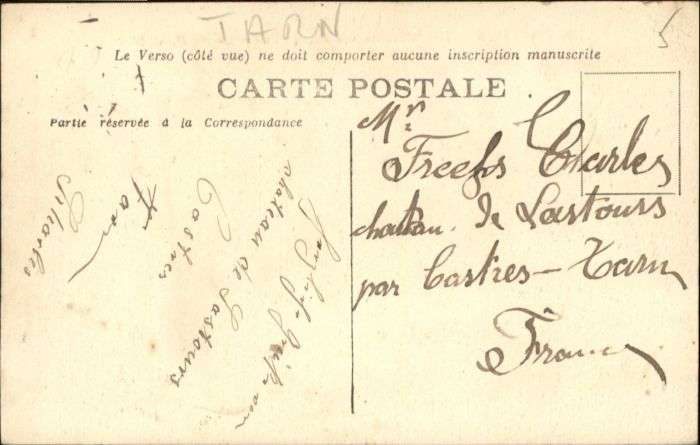 TARN
Le Verso (côté vue) ne doit comporter aucune inscription manuscrite
CARTE POSTALE
Partie réservée à la Correspondance
Mr
Freefos Charles
chateau de Lastours
par Castres - Tarn
France
chateau de Lastours
Castres
Tarn
Charles
5